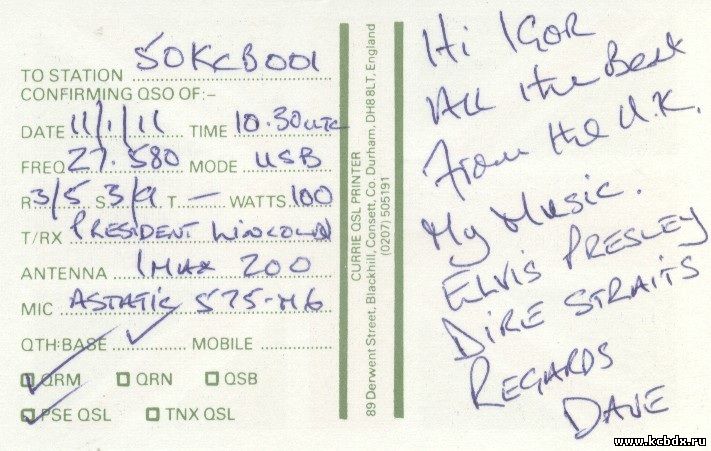 TO STATION 50KCB001
CONFIRMING QSO OF:-
DATE 11/1/11 TIME 10.30UTC
FREQ 27.580 MODE USB
R 3/5 S 3/9 T — WATTS 100
T/RX PRESIDENT LINCOLN
ANTENNA IMAX 200
MIC ASTATIC 575-M6
QTH:BASE ✓ MOBILE
QRM QRN QSB
PSE QSL TNX QSL
CURRIE QSL PRINTER
89 Derwent Street, Blackhill, Consett, Co. Durham, DH88LT, England
(0207) 505191
Hi IGOR
All the Best
From the U.K.
My Music.
ELVIS PRESLEY
DIRE STRAITS
REGARDS
DAVE
www.kcbdx.ru